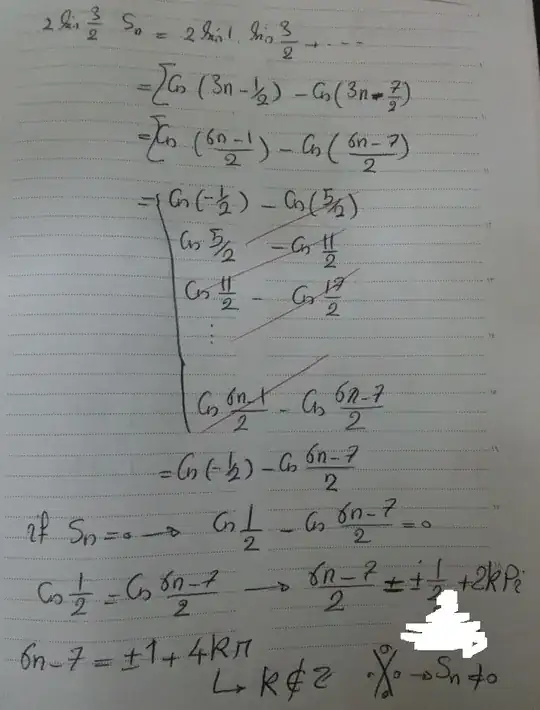 2 Sin 3/2 Sn = 2 Sin 1 . Sin 3/2 + ....
= [Cos (3n - 1/2) - Cos (3n - 7/2)
= [Cos (6n-1/2) - Cos (6n-7/2)
= Cos (-1/2) - Cos (5/2)
Cos 5/2 - Cos 11/2
Cos 11/2 - Cos 17/2
⋮
Cos 6n-1/2 - Cos 6n-7/2
= Cos (-1/2) - Cos 6n-7/2
if Sn = 0 → Cos 1/2 - Cos 6n-7/2 = 0
Cos 1/2 = Cos 6n-7/2 → 6n-7/2 = ± 1/2 + 2kPi
6n-7 = ±1 + 4kπ
↳ k ∉ Z → Sn ≠ 0